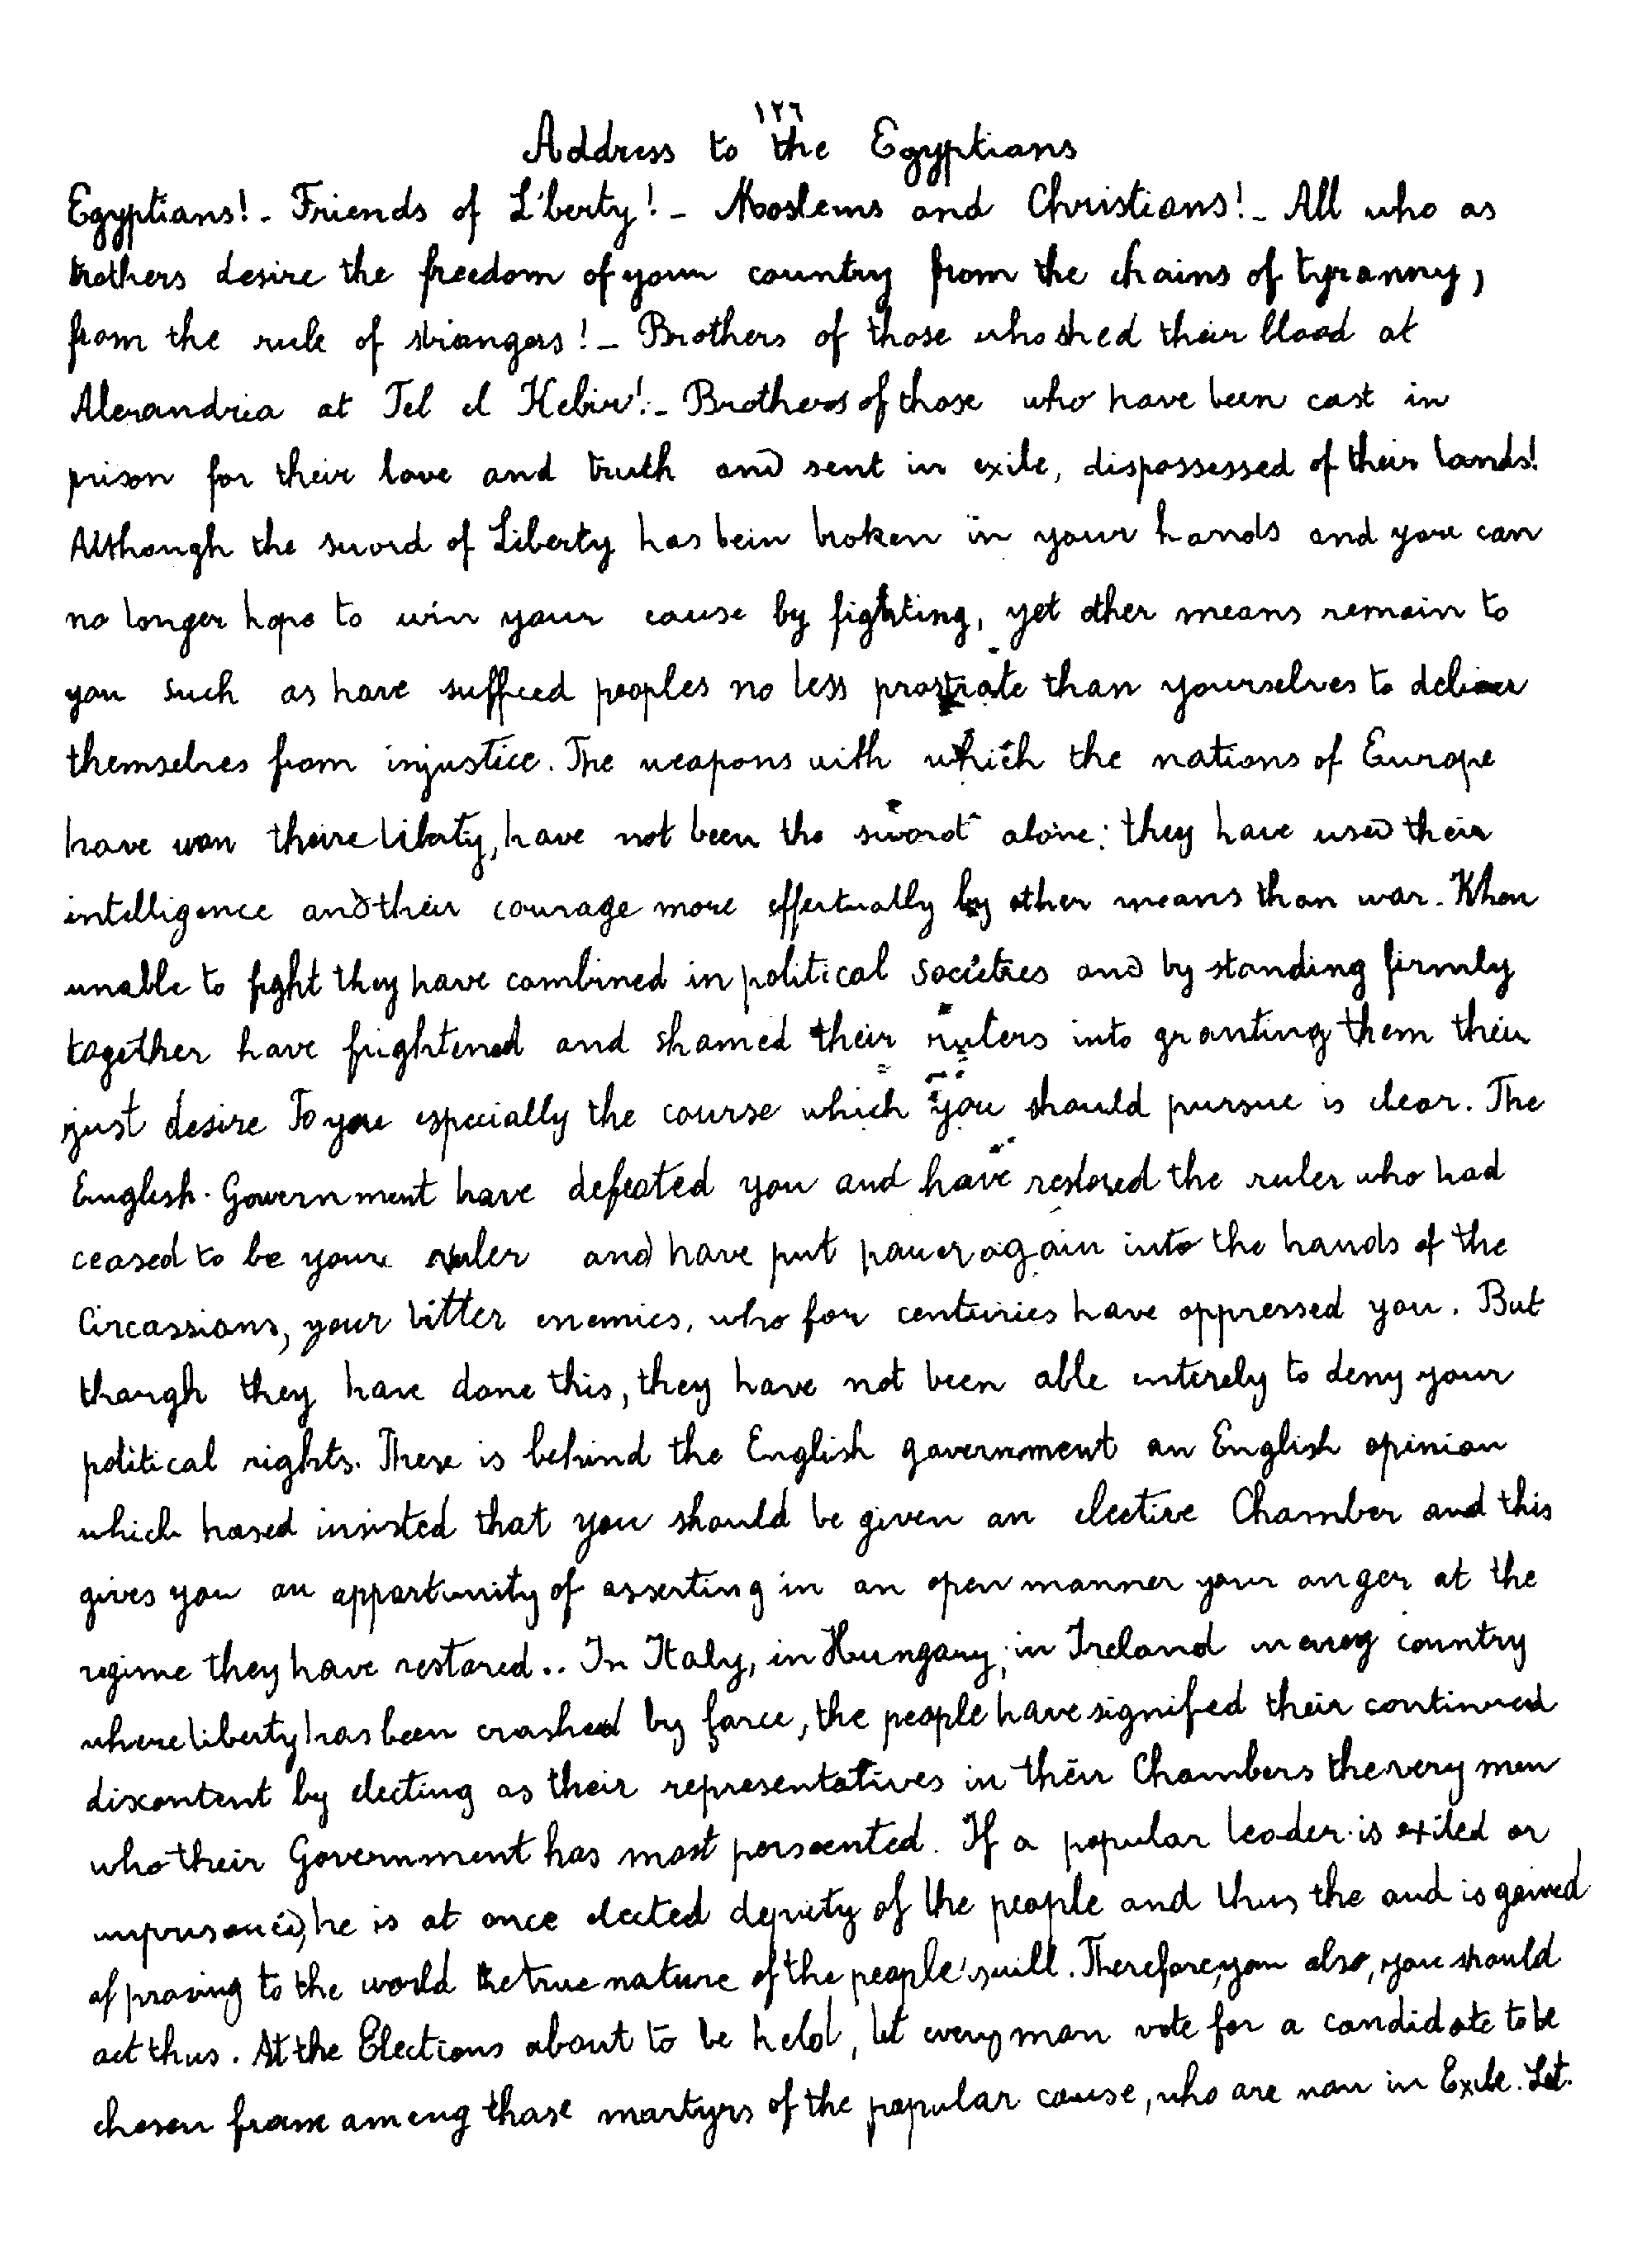 ١٢٦
Address to the Egyptians
Egyptians! - Friends of Liberty! - Moslems and Christians! - All who as
brothers desire the freedom of your country from the chains of tyranny,
from the rule of strangers! - Brothers of those who shed their blood at
Alexandria at Tel el Kebir! - Brothers of those who have been cast in
prison for their love and truth and sent in exile, dispossessed of their lands!
Although the sword of Liberty has bein broken in your hands and you can
no longer hope to win your cause by fighting, yet other means remain to
you such as have sufficed peoples no less prostrate than yourselves to deliver
themselves from injustice. The weapons with which the nations of Europe
have won their liberty, have not been the sword alone: they have used their
intelligence and their courage more effectually by other means than war. When
unable to fight they have combined in political societies and by standing firmly
together have frightened and shamed their rulers into granting them their
just desire To you especially the course which you should pursue is clear. The
English. Government have defeated you and have restored the ruler who had
ceased to be your ruler and have put power again into the hands of the
Circassians, your bitter enemies, who for centuries have oppressed you. But
though they have done this, they have not been able enterely to deny your
political rights. There is behind the English government an English opinion
which hased insisted that you should be given an elective Chamber and this
gives you an opportunity of asserting in an open manner your anger at the
regime they have restored.. In Italy, in Hungary, in Ireland in every country
where liberty has been crashed by force, the people have signified their continued
discontent by electing as their representatives in their Chambers the very men
who their Government has most persecuted. If a popular leader is exiled or
imprisoned, he is at once elected deputy of the people and thus the aud is gained
of proving to the world the true nature of the people's will. Therefore, you also, you should
act thus. At the Elections about to be held, let every man vote for a candidate to be
chosen from among those martyrs of the popular cause, who are now in Exile. Let.